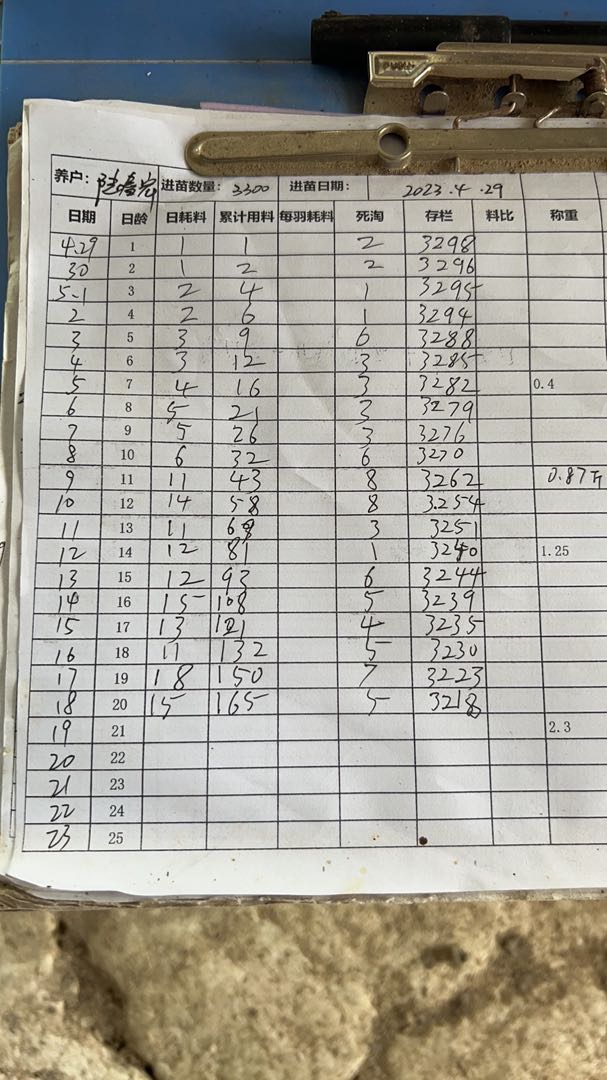 养户: 进苗数量: 3300 进苗日期: 2023.4.29
日期 日龄 日耗料 累计用料 每羽耗料 死淘 存栏 料比 称重
4.29 1 1 1 2 3298
30 2 1 2 2 3296
5.1 3 2 4 1 3295
2 4 2 6 1 3294
3 5 3 9 6 3288
4 6 3 12 3 3285
5 7 4 16 3 3282 0.4
6 8 5 21 3 3279
7 9 5 26 3 3276
8 10 6 32 6 3270
9 11 11 43 8 3262 0.87斤
10 12 14 58 8 3254
11 13 11 69 3 3251
12 14 12 81 1 3250 1.25
13 15 12 93 6 3244
14 16 15 108 5 3239
15 17 13 121 4 3235
16 18 11 132 5 3230
17 19 18 150 7 3223
18 20 15 165 5 3218
19 21 2.3
20 22
21 23
22 24
23 25